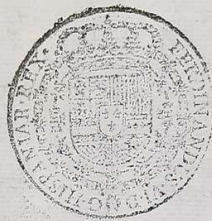 FERDINANDVS·VI·D·G·HISPANIAR·REX·